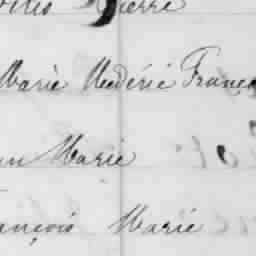 Pierre
Marie Médéric Franço
an Marie
ançois Marie